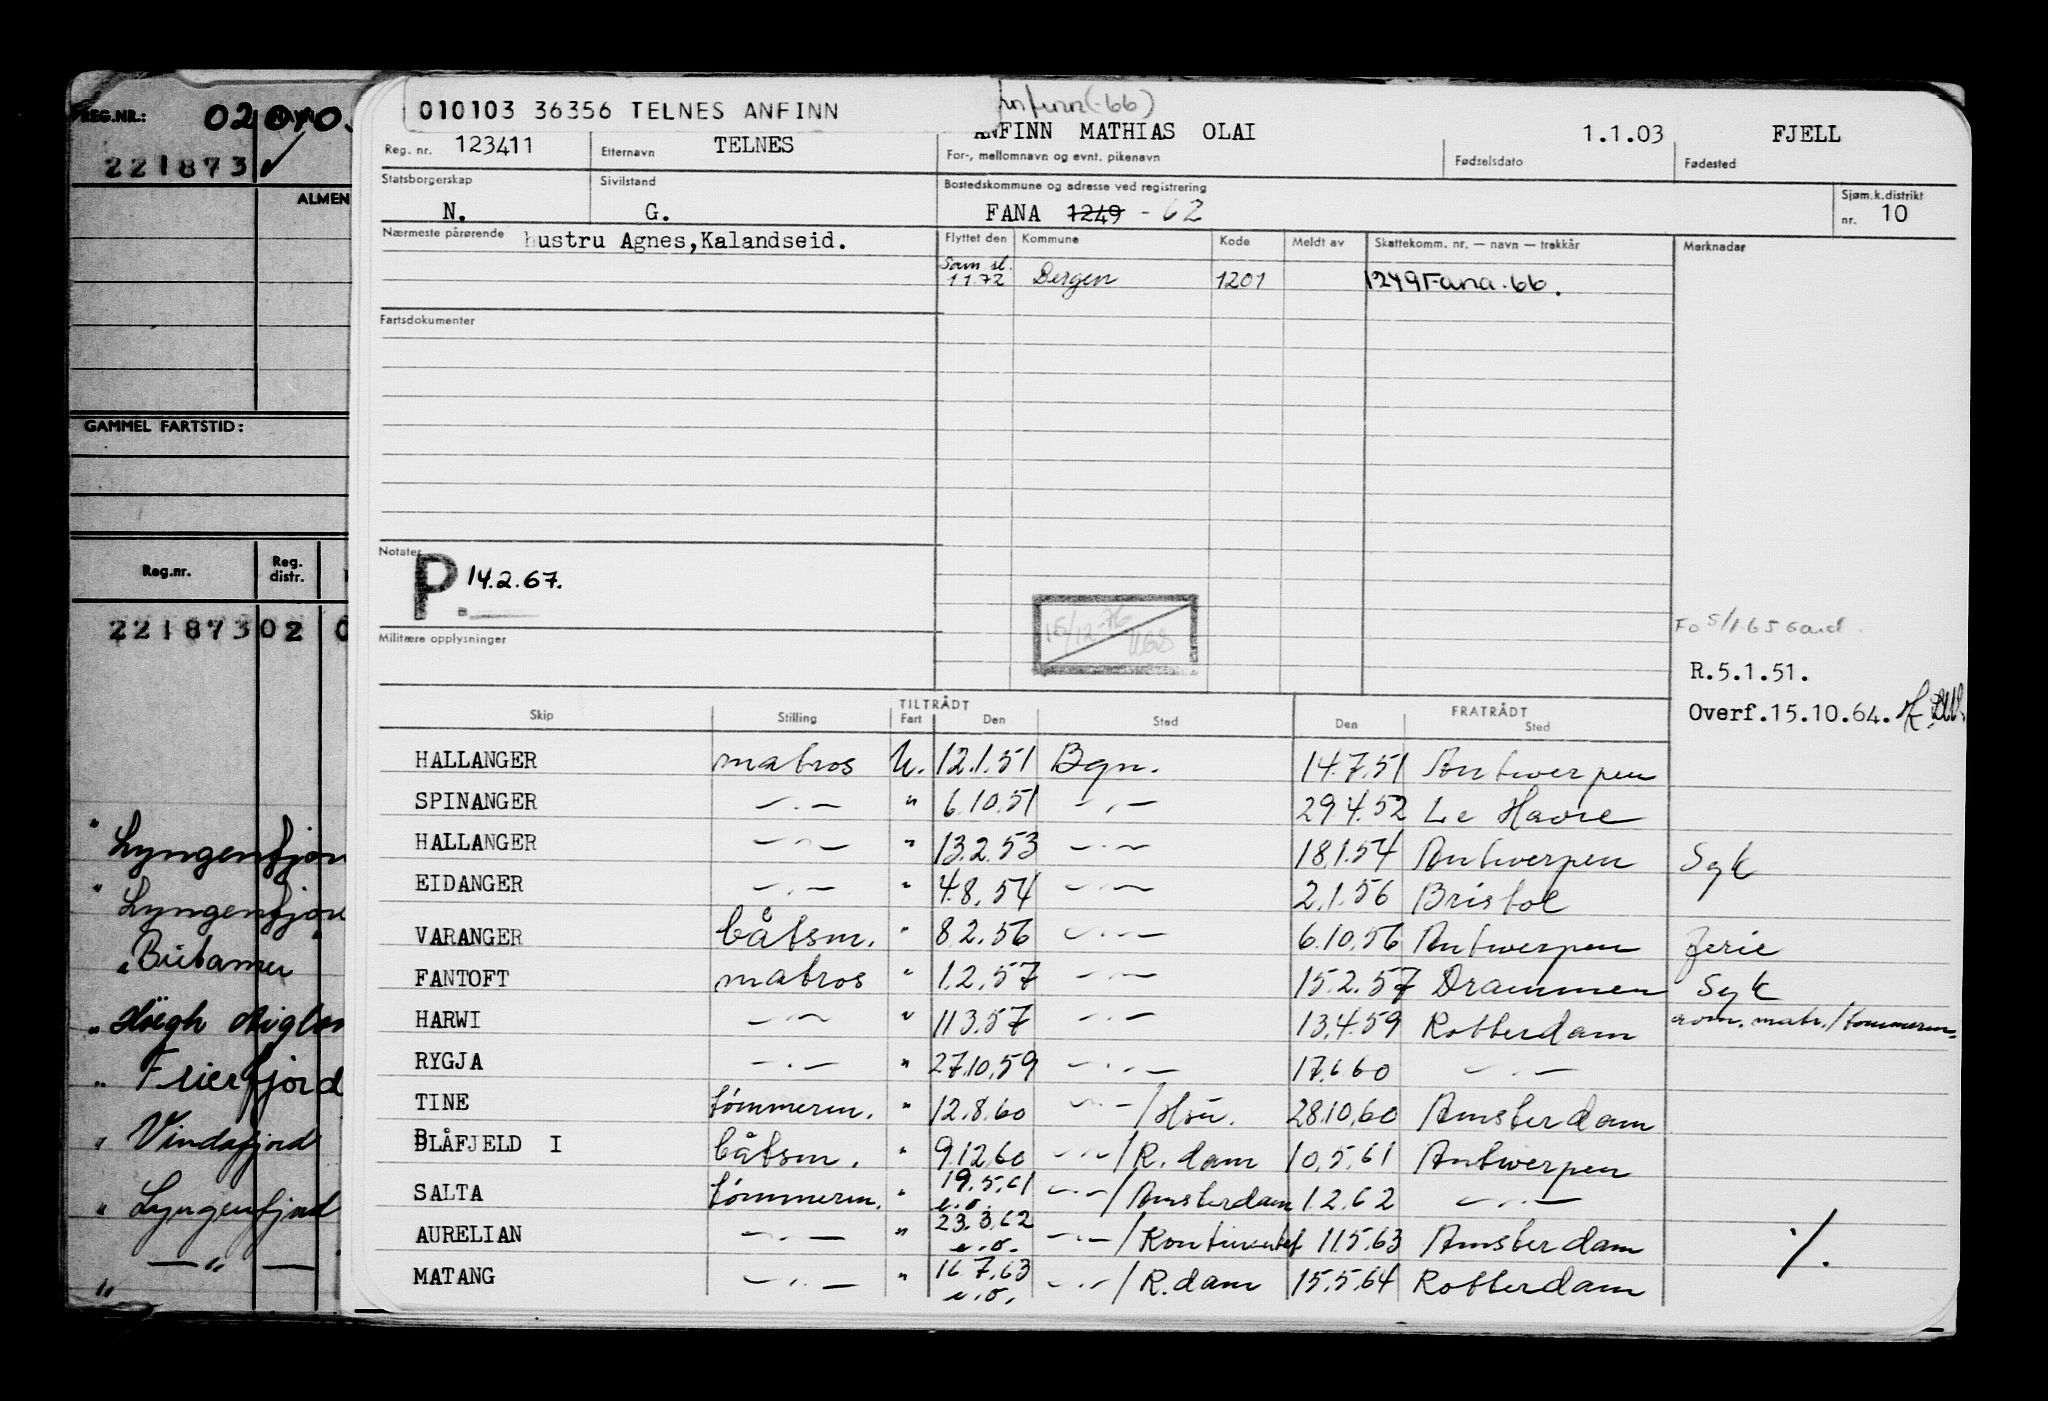 REG.NR.:
221873 ✓
ALMEN
GAMMEL FARTSTID:
Reg.nr. Reg. distr.
221873 02 0
" Lyngenfjor
" Lyngenfjor
" Höegh
" Freierfjord
" Vindafjord
" Lyngenfjord
" — " —
010103 36356 TELNES ANFINN
Anfinn (-66)
Reg. nr. 123411 Etternavn TELNES ANFINN MATHIAS OLAI 1.1.03 FJELL
For-, mellomnavn og evnt. pikenavn Fødselsdato Fødested
Statsborgerskap Sivilstand Bostedskommune og adresse ved registrering Sjøm.k.distrikt
N. G. FANA 1249 - 62 nr. 10
Nærmeste pårørende hustru Agnes,Kalandseid. Flyttet den Kommune Kode Meldt av Skattekomm. nr. — navn — trekkår Merknader
Sam.sl.
1.1.72 Bergen 1201 1249 Fana-66.
Fartsdokumenter
Notater
P 14.2.67.
15/12-76
Militære opplysninger
Fo 5/1.65
R.5.1.51.
Overf.15.10.64.
TILTRÅDT FRATRÅDT
Skip Stilling Fart Den Sted Den Sted
HALLANGER matros U. 12.1.51 Bgn. 14.7.51 Antwerpen
SPINANGER —.— " 6.10.51 —.— 29.4.52 Le Havre
HALLANGER —.— " 13.2.53 —.— 18.1.54 Antwerpen Syk
EIDANGER —.— " 4.8.54 —.— 2.1.56 Bristol
VARANGER båtsm. " 8.2.56 —.— 6.10.56 Antwerpen ferie
FANTOFT matros " 1.2.57 —.— 15.2.57 Drammen Syk
HARWI —.— " 11.3.57 —.— 13.4.59 Rotterdam avm. matr./tømmerm.
RYGJA —.— " 27.10.59 —.— 17.6.60 —.—
TINE tømmerm. " 12.8.60 —.—/Hsu. 28.10.60 Amsterdam
BLÅFJELD I båtsm. " 9.12.60 —.—/R.dam 10.5.61 Antwerpen
SALTA tømmerm. " 19.5.61 e.o. —.—/Amsterdam 1.2.62 —.—
AURELIAN —.— " 23.3.62 e.o. —.—/Kontinentet 11.5.63 Amsterdam
MATANG —.— " 16.7.63 e.o. —.—/R.dam 15.5.64 Rotterdam
./.